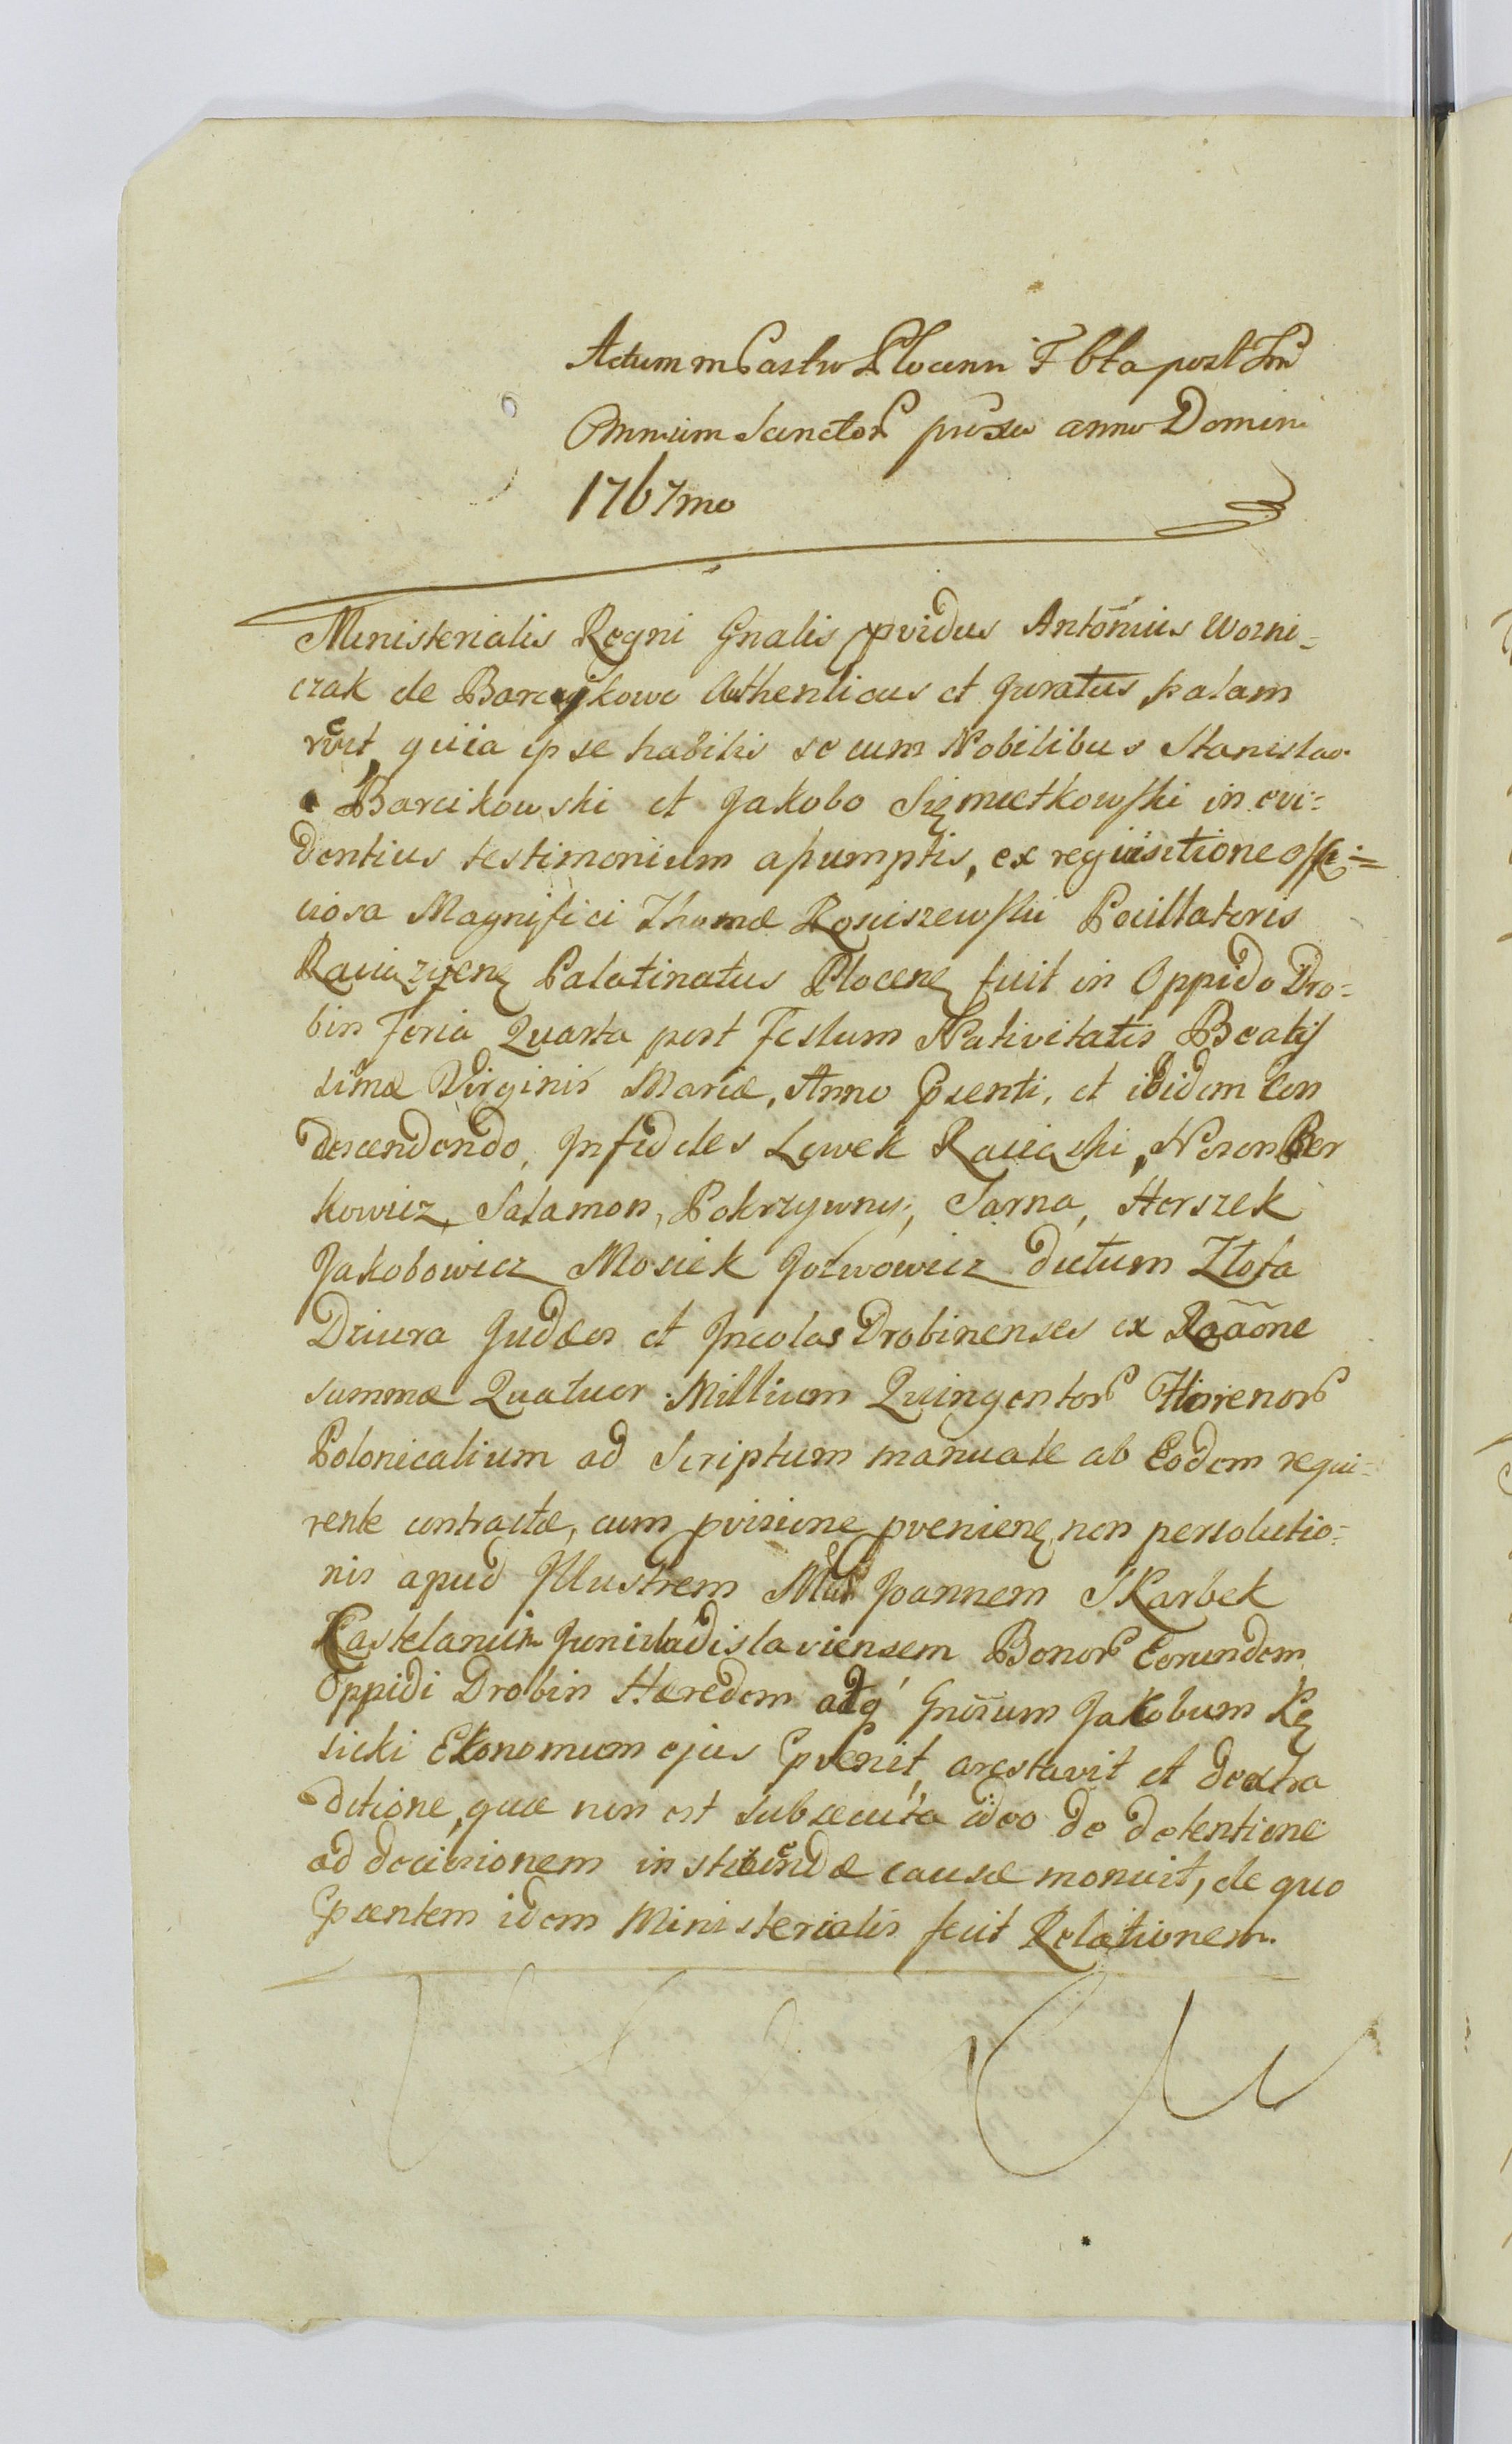 Actum in Castro Plocen F 6ta post Fm
Omnium Sanctor proxa anno Domini
1767mo
Ministerialis Regni Gnalis pvidus Antonius Wozni=
czak de Barcijkowo Authenticus et Juratus palam
rvit, quia ipse habitis secum Nobilibus Stanislao
Barcikowski et Jakobo Szmietkowski in evi=
dentius testimonium assumptis, ex requisitione offi=
ciosa Magnifici Thomæ Rosciszewski Pocillatoris
Palatinatus Plocenę fuit in Oppido Dro=
bin Feria Quarta post Festum Nativitatis Beatis
simæ Virginis Mariæ, Anno Psenti, et ibidem Con
descendendo, Infideles Lewek Raciąski, Noson Ber
kowicz, Salamon, Pokrzywny, Sarna, Herszek
Jakobowicz Mosiek Jozwowicz dictum Złota
Dziura Judæos et Incolas Drobinenses ex Raãone
summæ Quatuor Millium Quingentor Florenor
Polonicalium ad Scriptum manuale ab Eodem requi=
rente contractæ, cum pvisione pvenienę non persolutio=
nis apud Illustrem Joannem Skarbek
Kastelanum Juniwladislaviensem Bonor Eorundem
Oppidi Drobin Hæredem adq' Gnosum Jakobum Kę
sicki Ekonomum ejus pvenit, arestavit et de extra
ditione, quæ non est subsecuta ideo de detentione
ad decisionem instituendæ causæ monuit, de quo
Psentem idem Ministerialis fecit Relationem.